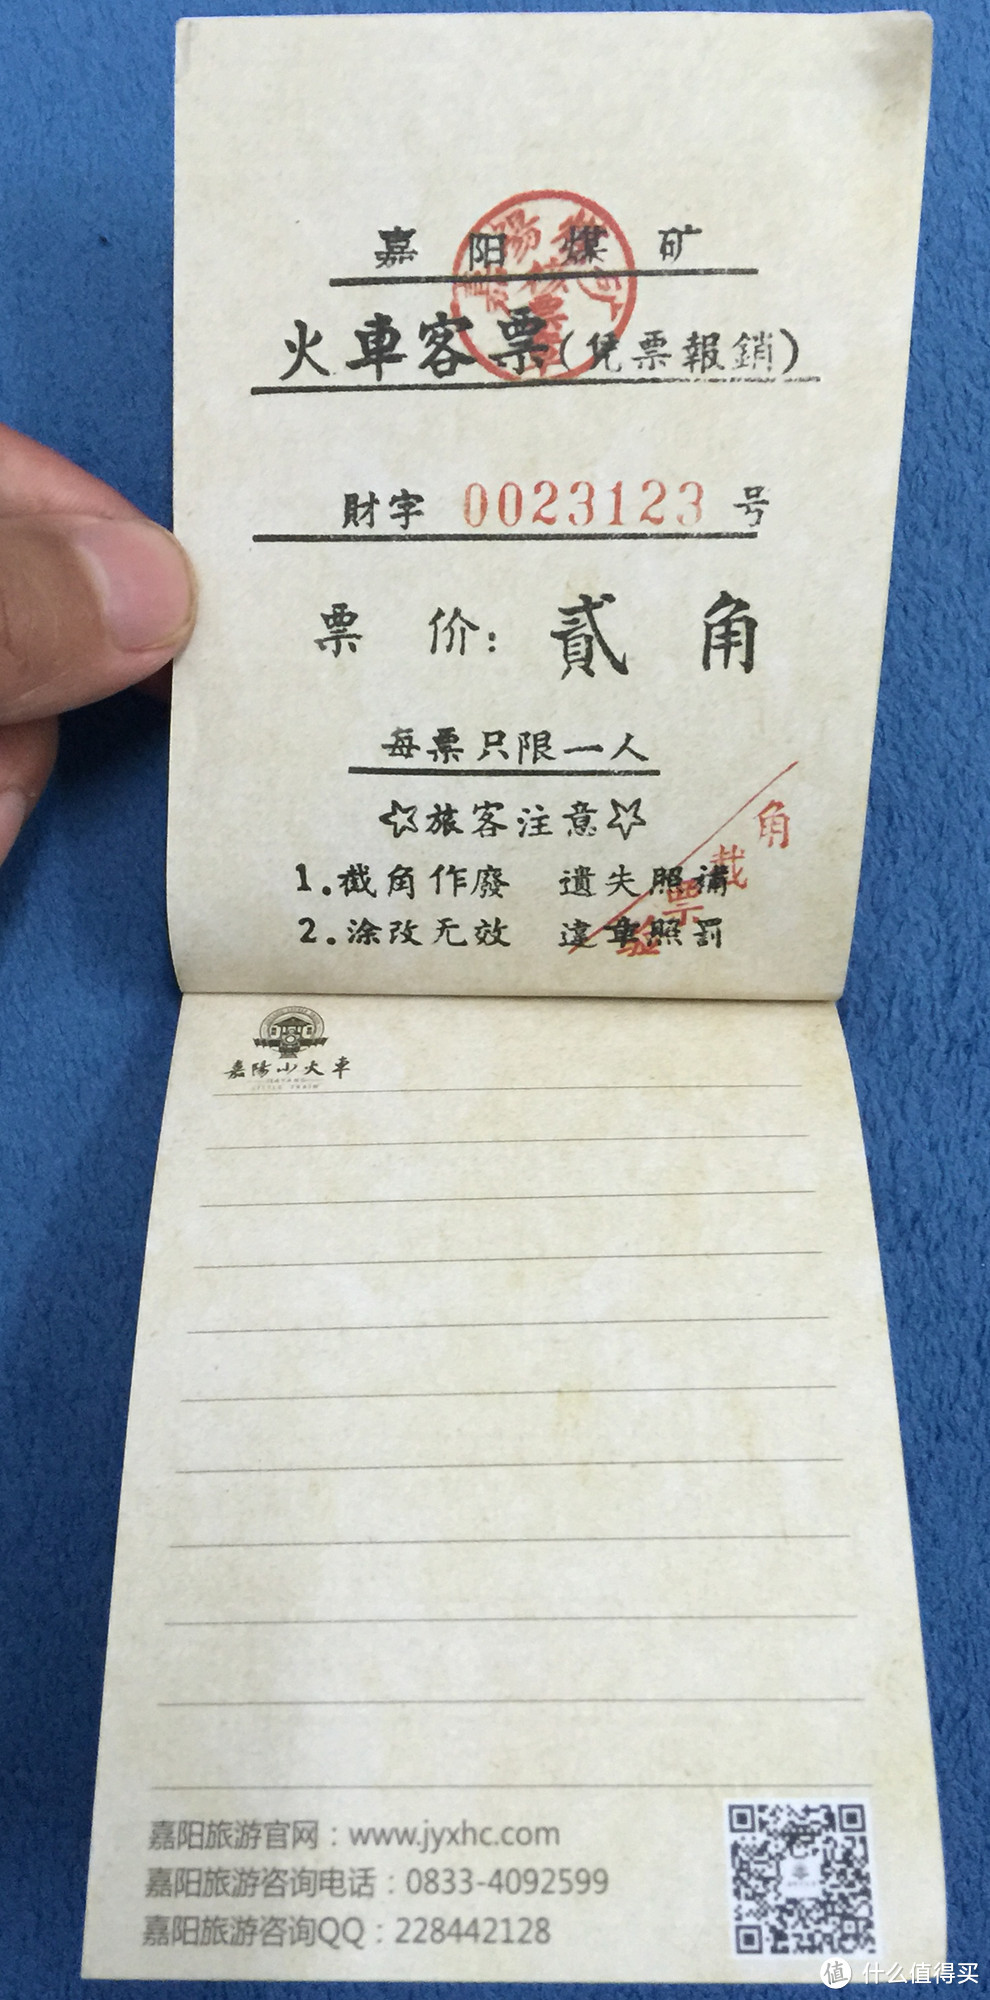 嘉阳煤矿
火車客票(凭票報銷)
財字 0023123 号
票 价: 貳角
每票只限一人
☆旅客注意☆
1.截角作廢 遺失照補
2.涂改无效 違章照罰
角
裁
票
验
嘉陽小火車
嘉阳旅游官网：www.jyxhc.com
嘉阳旅游咨询电话：0833-4092599
嘉阳旅游咨询QQ：228442128
值 什么值得买